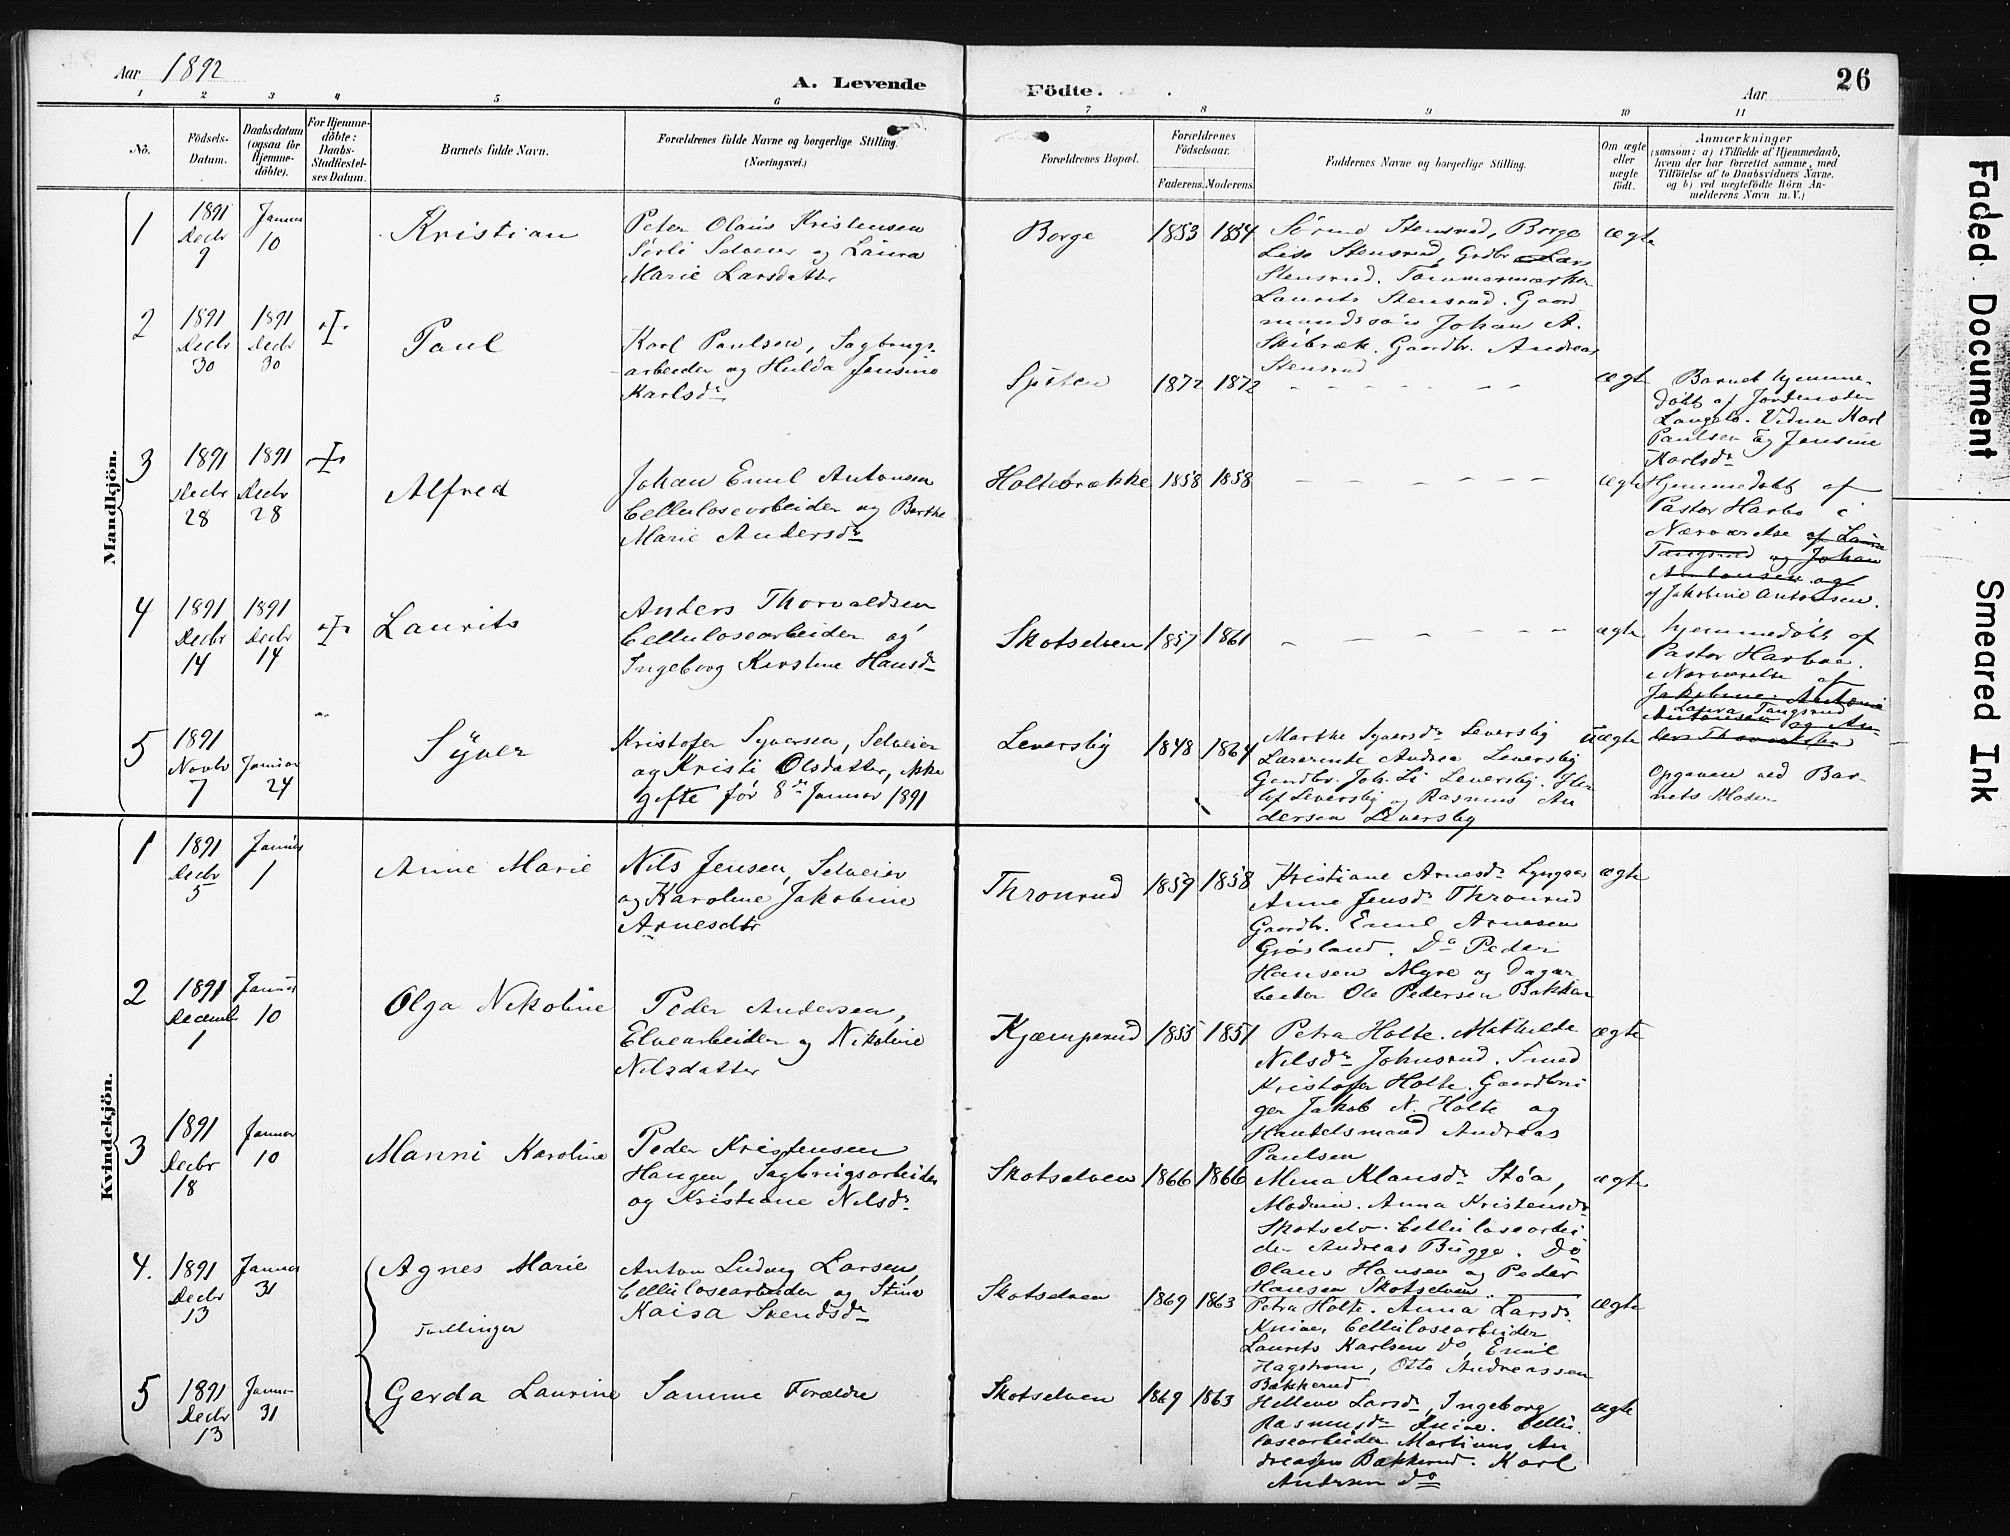 Aar 1892
A. Levende
Födte.
Aar
26
1 2 3 4 5 6 7 8 9 10 11
No.
Födsels-
Datum.
Daabsdatum
(ogsaa for
Hjemme-
döbte).
For Hjemme-
döbte:
Daabs-
Stadfæstel-
ses Datum.
Barnets fulde Navn.
Forældrenes fulde Navne og borgerlige Stilling.
(Næringsvei.)
Forældrenes Bopæl.
Forældrenes
Födselsaar.
Faderens. Moderens.
Faddernes Navne og borgerlige Stilling.
Om ægte
eller
uægte
födt.
Anmærkninger
(saasom: a) i Tilfælde af Hjemmedaab,
hvem der har forrettet samme, med
Tilföielse af to Daabsvidners Navne.
og b) ved uægtefödte Börn An-
melderens Navn m. V.)
Mandkjön.
1
1891
Decbr
9
Januar
10
Kristian
Peter Olaus Kristensen
Sørli Selveier og Laura
Marie Larsdatter
Borge
1853 1854
Stensrud, Borge
Lise Stensrud, Grdbr Lars
Stensrud.
Laurits Stensrud. Gaard
mandssøn Johan A.
Skibræk. Gaardbr. Andreas
Stensrud
ægte
2
1891
Decbr
30
1891
Decbr
30
Paul
Karl Paulsen, Sagbrugs-
arbeider og Hulda Jensine
Karlsdr
1872 1872
ægte
Barnet hjemme-
døbt af Jordemoder
Langelo. Vidner Karl
Paulsen og Jensine
Karlsdr
3
1891
Decbr
28
1891
Decbr
28
Alfred
Johan Emil Antonsen
Cellulosearbeider og Berthe
Marie Andersdr
Holtebrække
1858 1858
ægte
Hjemmedøbt af
Pastor Harbo i
Nærværelse af Laura
Tangsrud og Johan
Antonsen og
af Jakobine Antonsen.
4
1891
Decbr
14
1891
Decbr
14
Laurits
Anders Thorvaldsen
Cellulosearbeider og
Ingeborg Kirstine Hansdr
Skotselven
1857 1861
ægte
hjemmedøbt af
Pastor Harboe.
i Nærværelse af
Jakobine
Laura Tangsrud
Antonsen og An-
ders Thorvaldsen
5
1891
Novbr
7
Januar
24
Syver
Kristofer Syversen, Selveier
og Kristi Olsdatter, ikke
gifte før 8de Januar 1891
Leversby
1848 1864
Marthe Syversdr Leversby
Lærerinde Andrea Leversby
Gaardbr. Joh. Li Leversby.
Leversby og Rasmus An
dersen Leversby
Uægte
Opgaven ved Bar-
nets Moder
Kvindekjön.
1
1891
Decbr
5
Januar
1
Anne Marie
Nils Jensen, Selveier
og Karoline Jakobine
Arnesdtr
Thronrud
1859 1858
Kristiane Arnesdr Lyngaas
Anne Jensdr Thronrud
Gaardbr. Emil Arnesen
Grøsland. Do Peder
Hansen Myre og Dagar
beider Ole Pedersen Bakken
ægte
2
1891
Decemb
1
Januar
10
Olga Nikoline
Peder Andersen,
Elvearbeider og Nikoline
Nilsdatter
Kjæmperud
1855 1851
Petra Holte. Mathilde
Nilsdr Johnsrud. Smed
Kristofer Holte. Gaardbru
ger Jakob N. Holte og
Handelsmand Andreas
Paulsen
ægte
3
1891
Decbr
18
Januar
10
Manni Karoline
Peder Kristensen
Haugen, Sagbrugsarbeider
og Kristiane Nilsdr
Skotselven
1866 1866
Mina Klausdr Støa,
Moderen. Anna Kristensdr
Skotselv. Cellulosearbei
der Andreas Bugge. Do
Olaus Hansen og Peder
Hansen Skotselven
ægte
4.
1891
Decbr
13
Januar
31
Agnes Marie
Tvillinger
Anton Ludvig Larsen,
Cellulosearbeider og Stina
Kaisa Svendsdr
Skotselven
1869 1863
Petra Holte. Anna Larsdr
Knive, Cellulosearbeider
Laurits Karlsen do, Emil
Hagstrøm, Otto Andreassen
Bækkerud
ægte
5
1891
Decbr
13
Januar
31
Gerda Laurine
Samme Forældre
Skotselven
1869 1863
Hellene Larsdr, Ingeborg
Rasmusdr Knive. Cellu
losearbeider Martinus An
dreassen Bækkerud. Karl
Andersen do
ægte
Faded Document
Smeared Ink